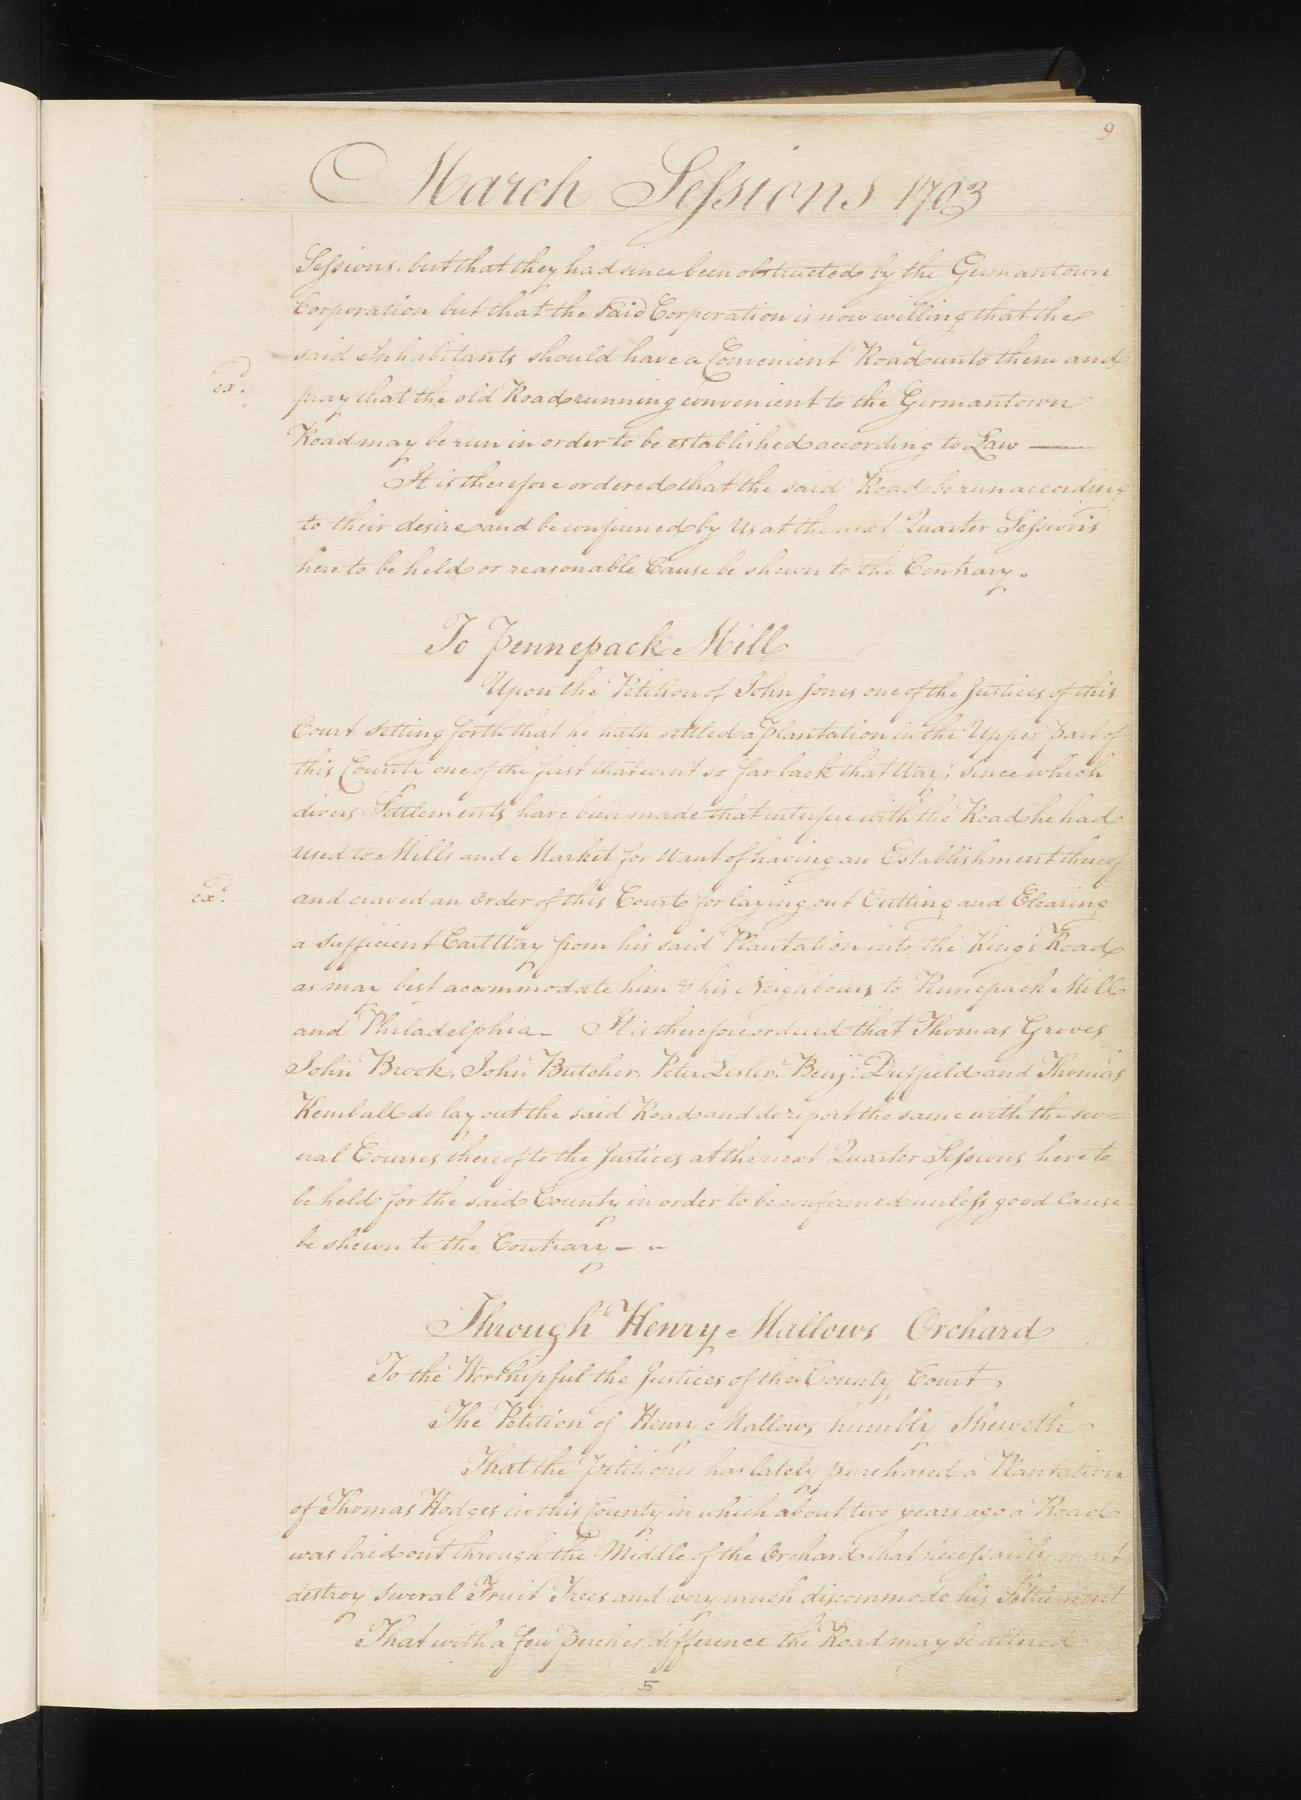 9
March Sessions 1703
Sessions, but that they had since been obstructed by the Germantown
Corporation but that the said Corporation is now willing that the
said Inhabitants should have a Convenient Road unto them and
exd.
pray that the old Road running convenient to the Germantown
Road may be run in order to be established according to Law ——
It is therefore ordered that the said Road be run according
to their desire and be confirmed by us at the next Quarter Sessions
here to be held or reasonable Cause be shewn to the Contrary.
To Pennepack Mill
Upon the Petition of John Jones one of the Justices of this
Court setting forth that he hath settled a Plantation in the Upper part of
this County one of the first that went so far back that Way; Since which
divers Settlements have been made that interfere with the Road he had
used to Mills and Market for Want of having an Establishment thereof
exd.
and craved an order of this Court for laying out Cutting and Clearing
a sufficient Cart Way from his said Plantation into the King's Road
as may best accommodate him & his Neighbours to Pennepack Mill
and Philadelphia – It is therefore ordered that Thomas Groves
John Brock, John Butcher, Peter Lester, Benj: Duffield and Thomas
Kemball do lay out the said Road and do report the same with the sev=
eral Courses thereof to the Justices at the next Quarter Sessions here to
be held for the said County in order to be confirmed unless good Cause
be shewn to the Contrary – –
Through Henry Mallows Orchard
To the Worshipful the Justices of the County Court
The Petition of Henry Mallows humbly Sheweth
That the petitioner has lately purchased a Plantation
of Thomas Hodges in this County in which about two years ago a Road
was laid out through the Middle of the Orchard that necessarily must
destroy several Fruit Trees and very much discommode his Settlement
That with a few perches difference the Road may be altered
5